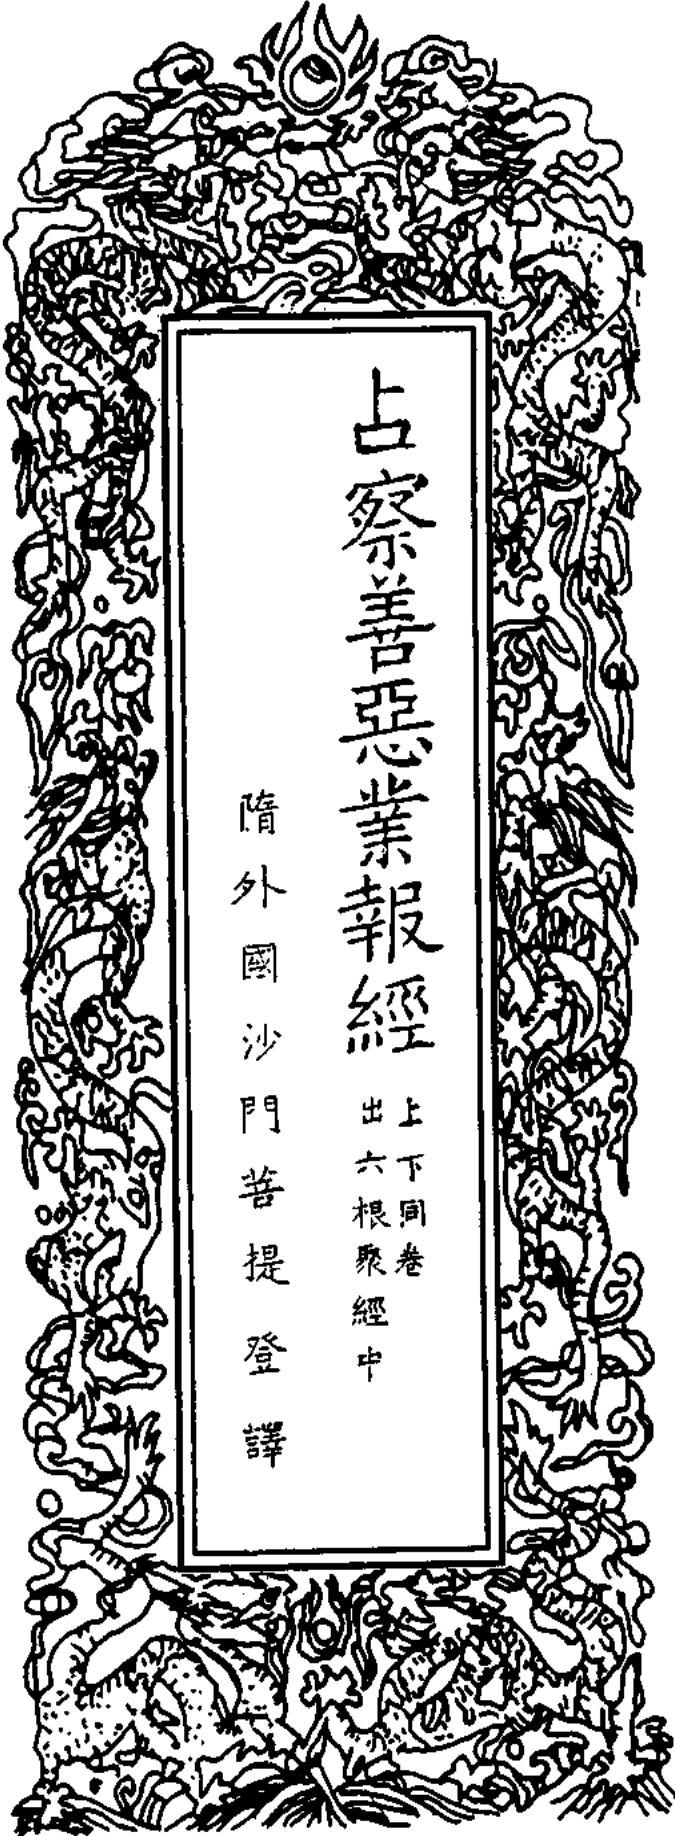 占察善惡業報經
上下同卷
出六根聚經中
隋外國沙門菩提登譯